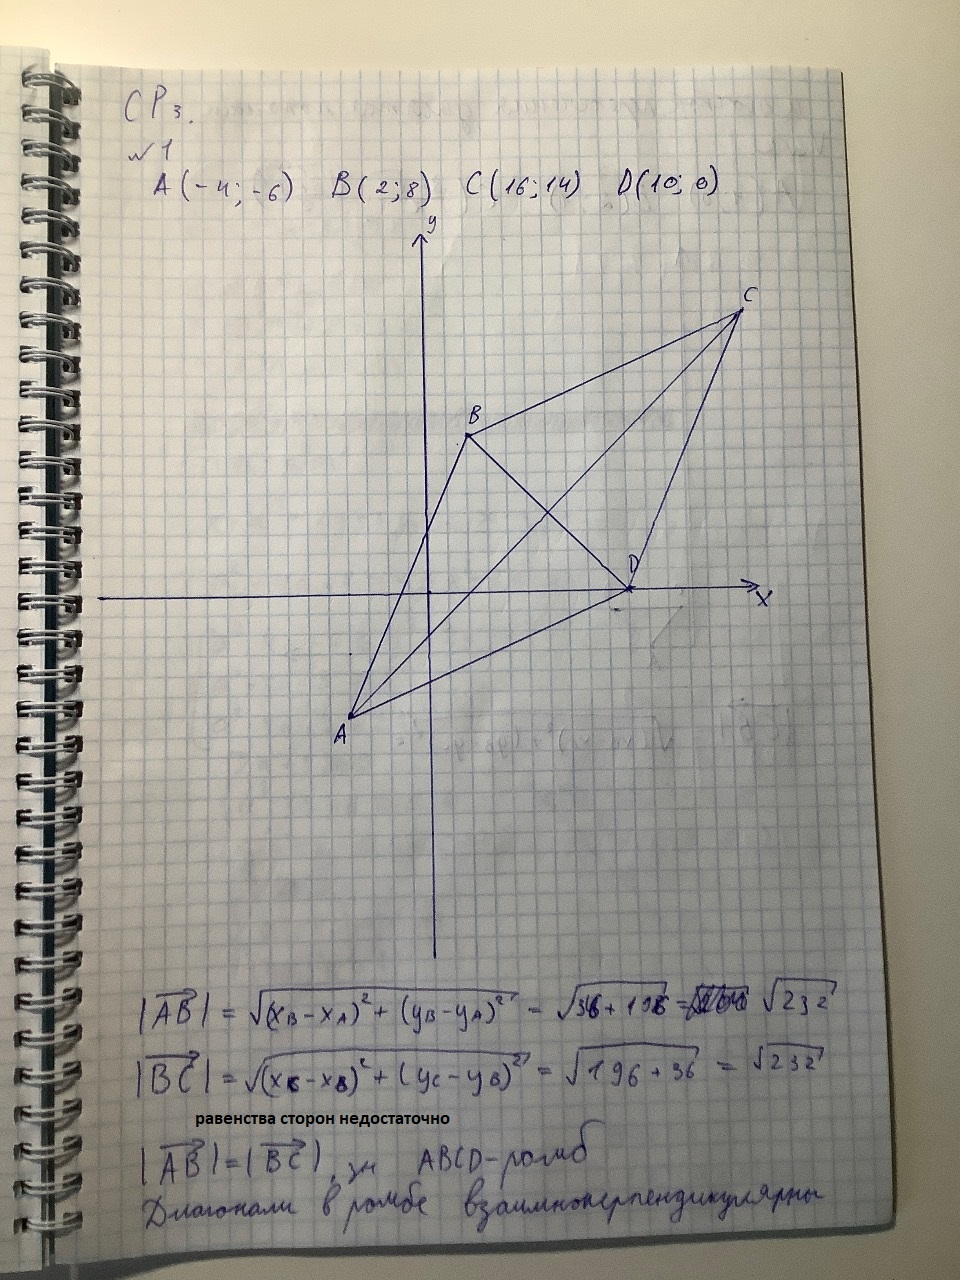 СР 3.
№1
A(-4;-6) B(2;8) C(16;14) D(10;0)
y
C
B
D
x
A
|AB| = √(x_B-x_A)²+(y_B-y_A)² = √36+196 = √232
|BC| = √(x_C-x_B)²+(y_C-y_B)² = √196+36 = √232
равенства сторон недостаточно
|AB|=|BC|, зн ABCD-ромб
Диагонали в ромбе взаимноперпендикулярны